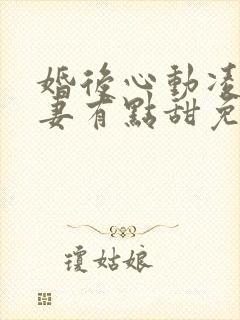 婚後心動凌
妻有點甜免
瓊姑娘